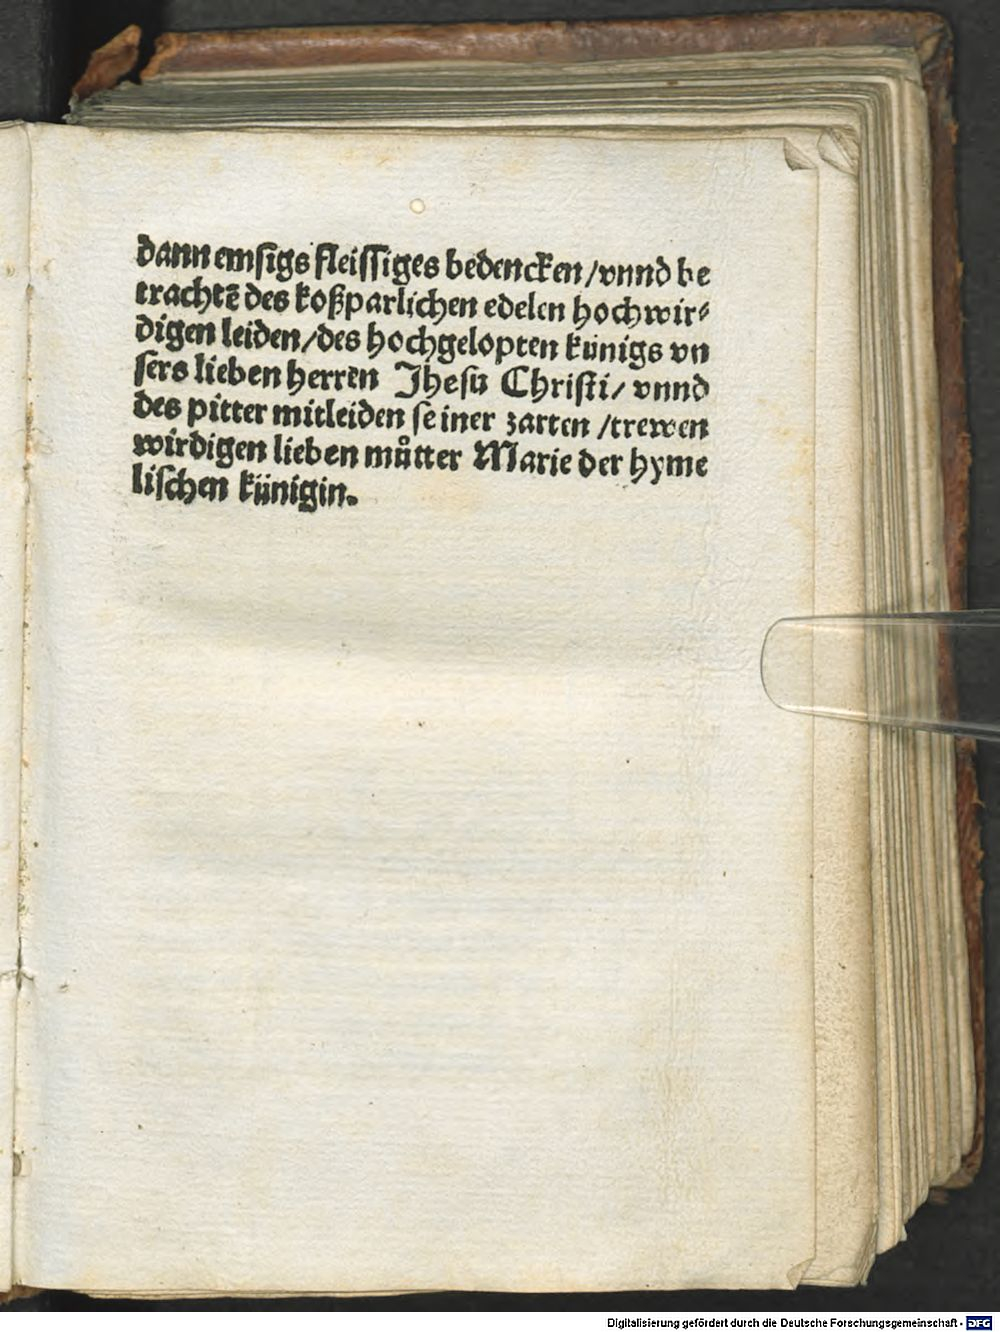 dann emsigs fleissiges bedencken/vnnd be
trachtē des koßparlichen edelen hochwir⸗
digen leiden/des hochgelopten künigs vn
sers lieben herren Jhesu Christi/ vnnd
des pitter mitleiden seiner zarten /trewen
wirdigen lieben můtter Marie der hyme
lischen künigin.
Digitalisierung gefördert durch die Deutsche Forschungsgemeinschaft - DFG